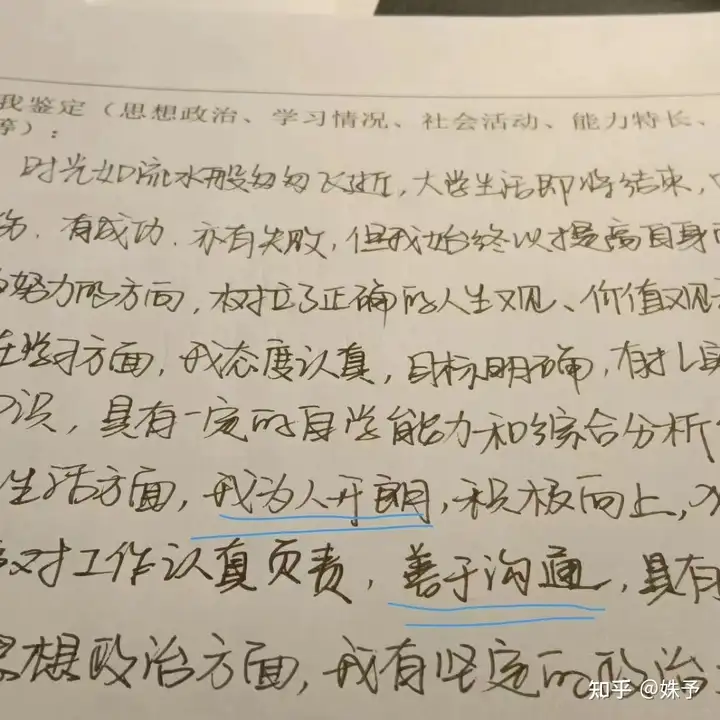 我鉴定（思想政治、学习情况、社会活动、能力特长、
等）：
时光如流水般匆匆飞逝，大学生活即将结束，
伤、有成功、亦有失败，但我始终以提高自身
努力的方向，树立了正确的人生观、价值观
在学习方面，我态度认真，目标明确，有扎实
识，具有一定的自学能力和综合分析
生活方面，我为人开朗，积极向上，
对工作认真负责，善于沟通，具有
思想政治方面，我有坚定的政治
知乎 @姝予